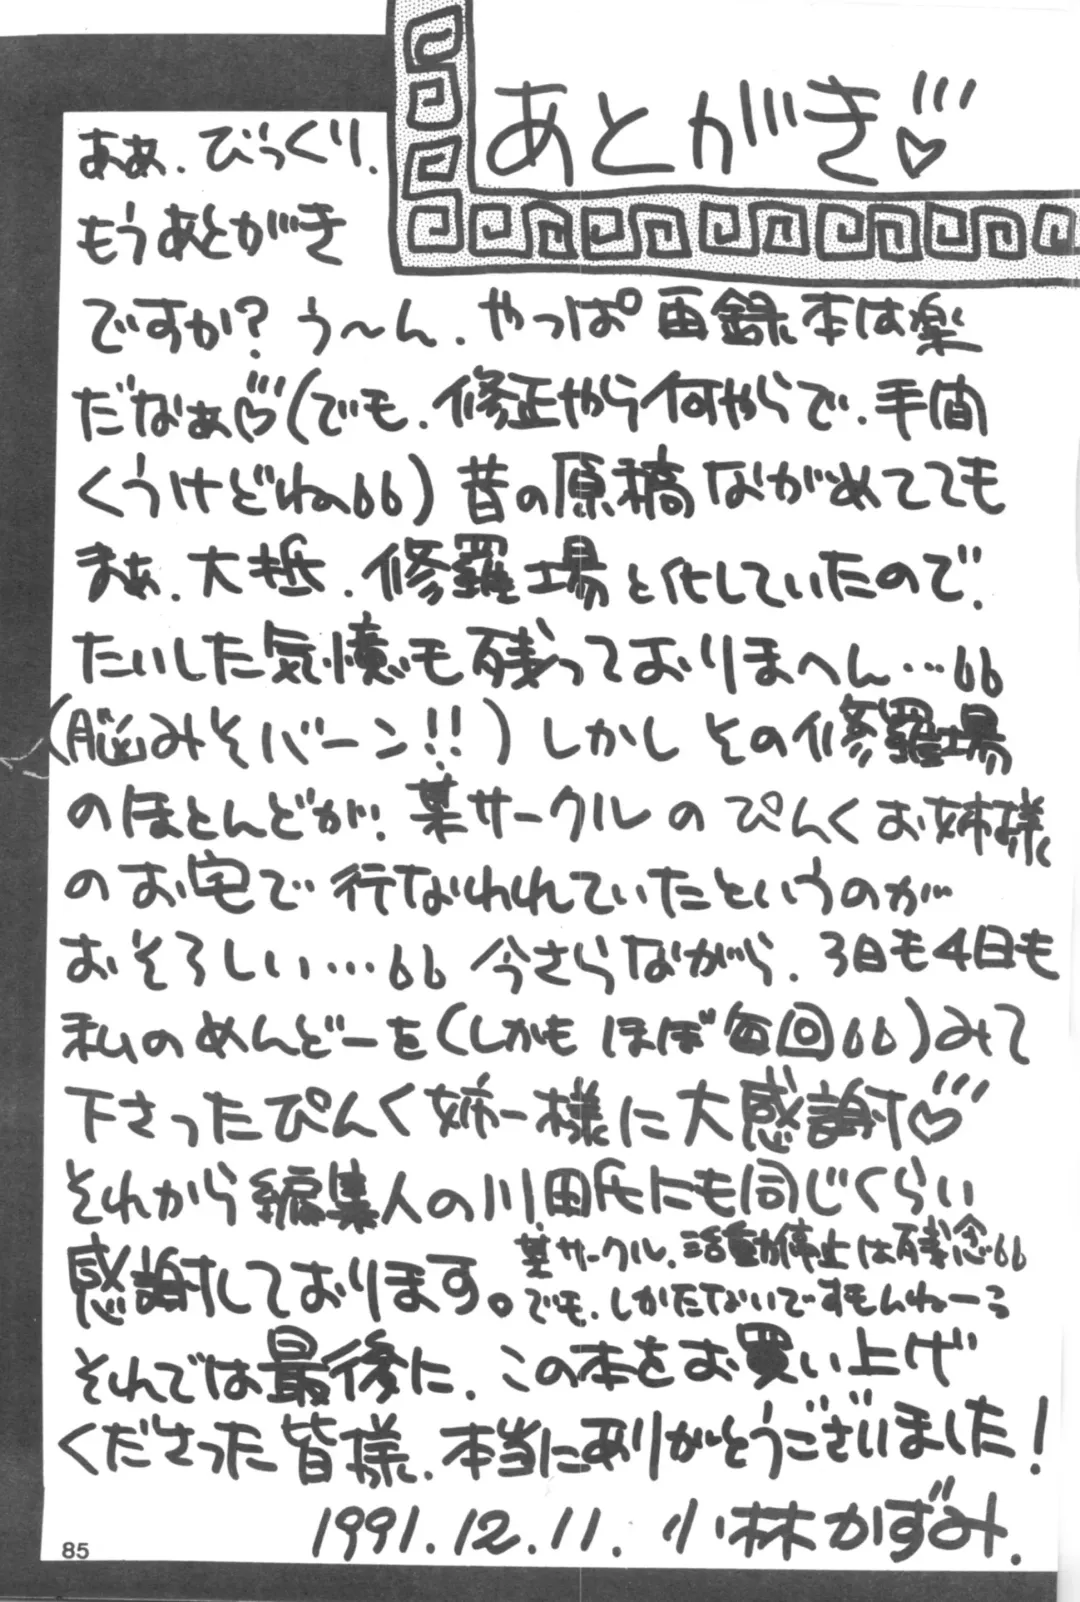 あとがき♡
ああ、びっくり、
もうあとがき
ですか？う〜ん、やっぱ再録本は楽
だなぁ♡(でも、修正やら何やらで、手間
くうけどねα66)昔の原稿ながめてても
まぁ、大抵、修羅場と化していたので、
たいした記憶も残っておりまへん…66
(脳みそバーン!!)しかしその修羅場
のほとんどが、某サークルのぴんくお姉様
のお宅で行なわれていたというのが
おそろしい…66 今さらながら、3日も4日も
私のめんどーを(しかもほぼ毎回66)みて
下さったぴんく姉一様に大感謝♡
それから編集人の川田氏にも同じくらい
感謝しております。
某サークル、活動停止は残念66
でも、しかたないですもんねーる
それでは最後に、この本をお買い上げ
くださった皆様、本当にありがとうございました！
1991.12.11. 小林かずみ.
85